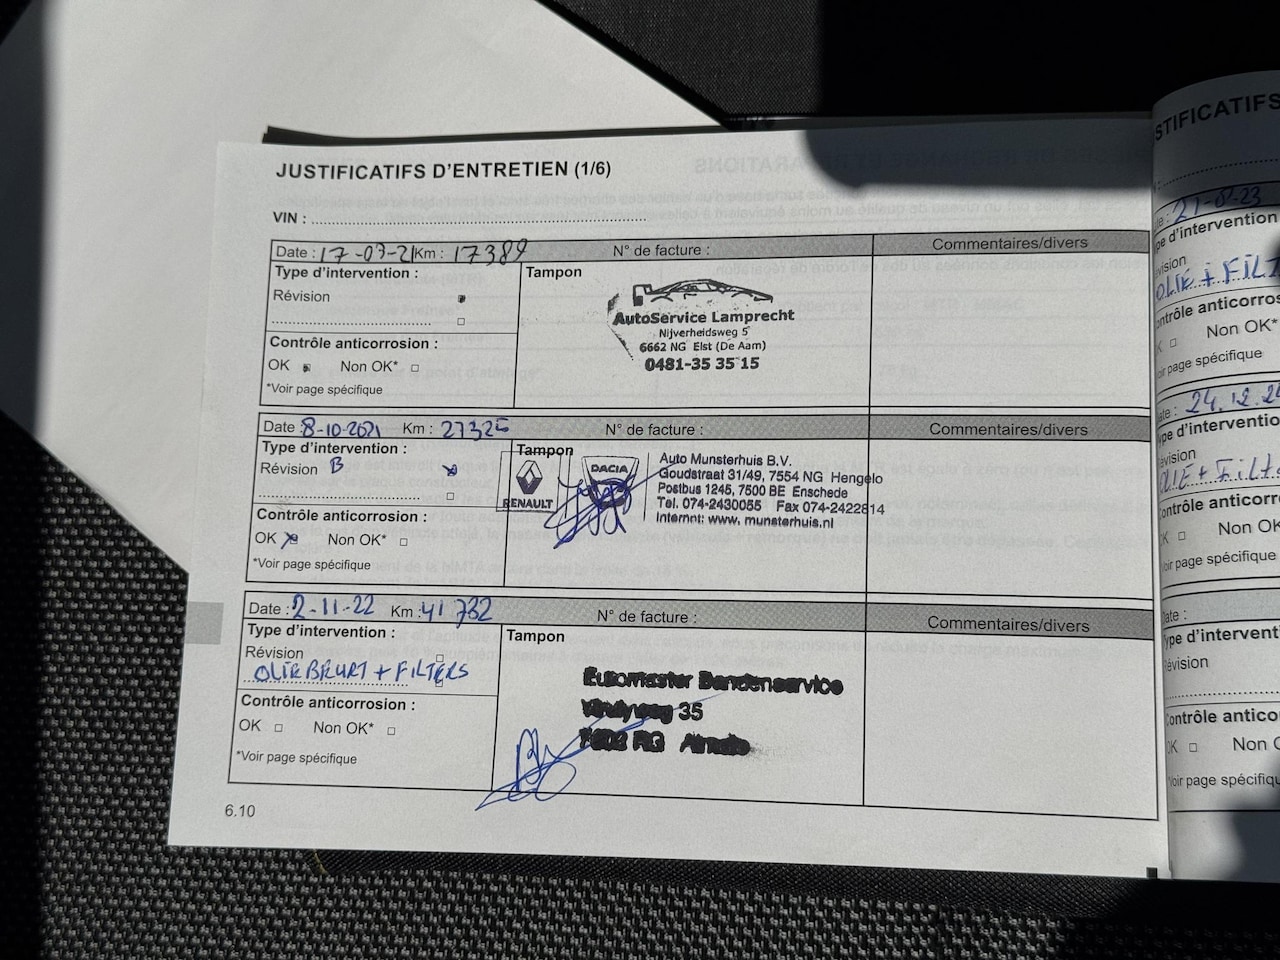 JUSTIFICATIFS D'ENTRETIEN (1/6)
VIN :
Date : 17-03-21 Km : 17389 N° de facture : Commentaires/divers
Type d'intervention :
Révision
Tampon
AutoService Lamprecht
Nijverheidsweg 5
6662 NG Elst (De Aam)
0481-35 35 15
Contrôle anticorrosion :
OK Non OK*
*Voir page spécifique
Date : 8-10-2021 Km : 27325 N° de facture : Commentaires/divers
Type d'intervention :
Révision B
Tampon
RENAULT
DACIA
Auto Munsterhuis B.V.
Goudstraat 31/49, 7554 NG Hengelo
Postbus 1245, 7500 BE Enschede
Tel. 074-2430055 Fax 074-2422814
Internet: www. munsterhuis.nl
Contrôle anticorrosion :
OK Non OK*
*Voir page spécifique
Date : 2-11-22 Km : 41 732 N° de facture : Commentaires/divers
Type d'intervention :
Révision
OLIEBEURT + FILTERS
Tampon
Euromaster Bandenservice
35
RG Almelo
Contrôle anticorrosion :
OK Non OK*
*Voir page spécifique
6.10
STIFICATIFS
-23
pe d'intervention
vision
OLIE + FILT
ntrôle anticorros
Non OK*
oir page spécifique
ate : 24.12.24
ype d'interventio
évision
OLIE + Filte
ontrôle anticorr
K Non OK*
oir page spécifiqu
Date :
Type d'interventi
Révision
Contrôle antico
OK Non O
Voir page spécifiqu